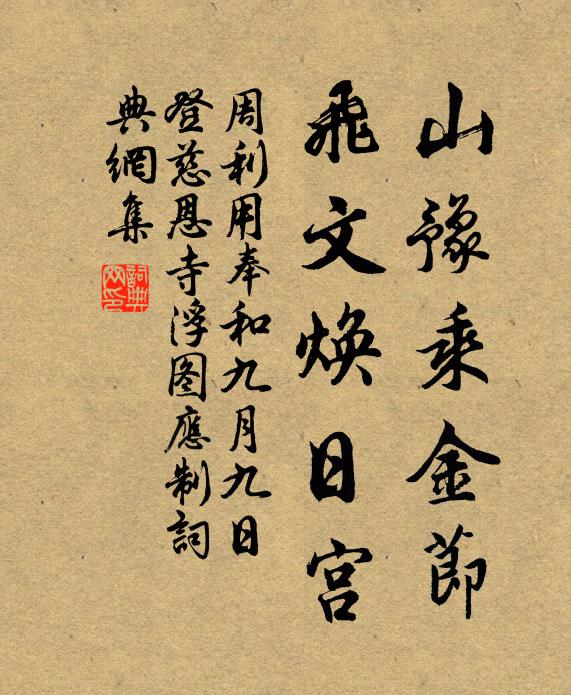 山豫乘金節
飛文煥日宮
周利用奉和九月九日
登慈恩寺浮图應制詞
典網集
詞典網印